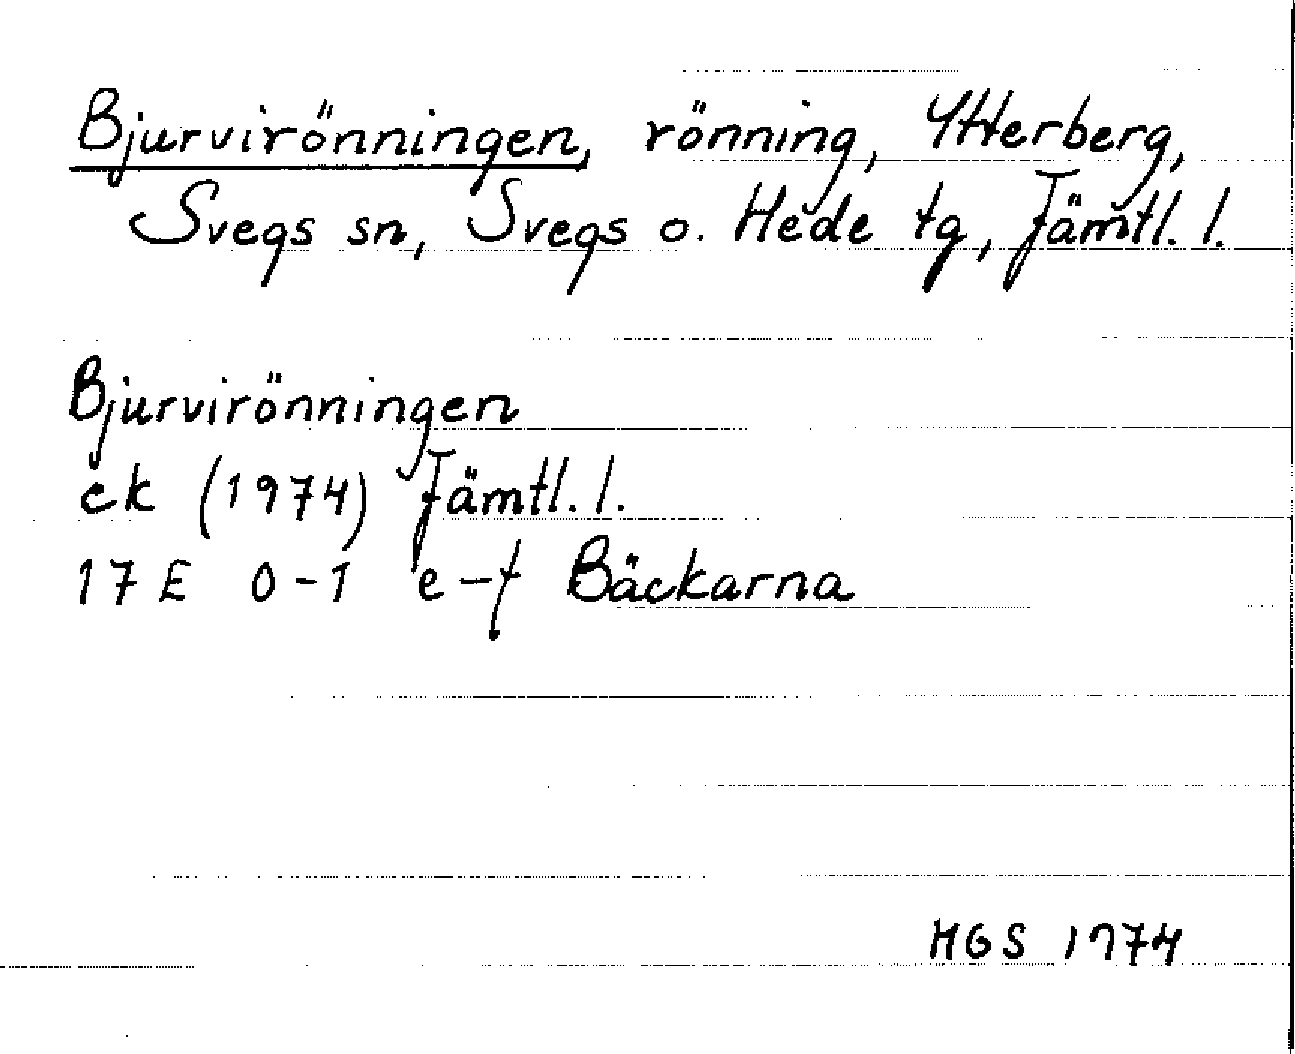 Bjurvirönningen, rönning, Ytterberg,
Svegs sn, Svegs o. Hede tg, Jämtl. l.
Bjurvirönningen
ek (1974) Jämtl. l.
17 E 0-1 e-f Bäckarna
MGS 1974